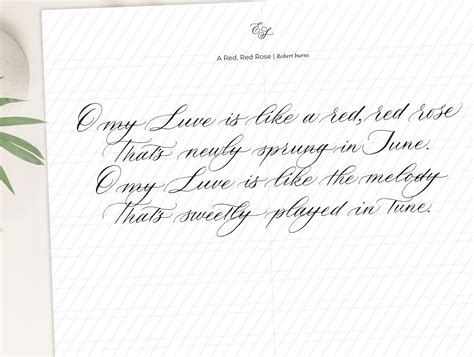 ES
A Red, Red Rose | Robert burns
O my Luve is like a red, red rose
That's newly sprung in June.
O my Luve is like the melody
That's sweetly played in tune.